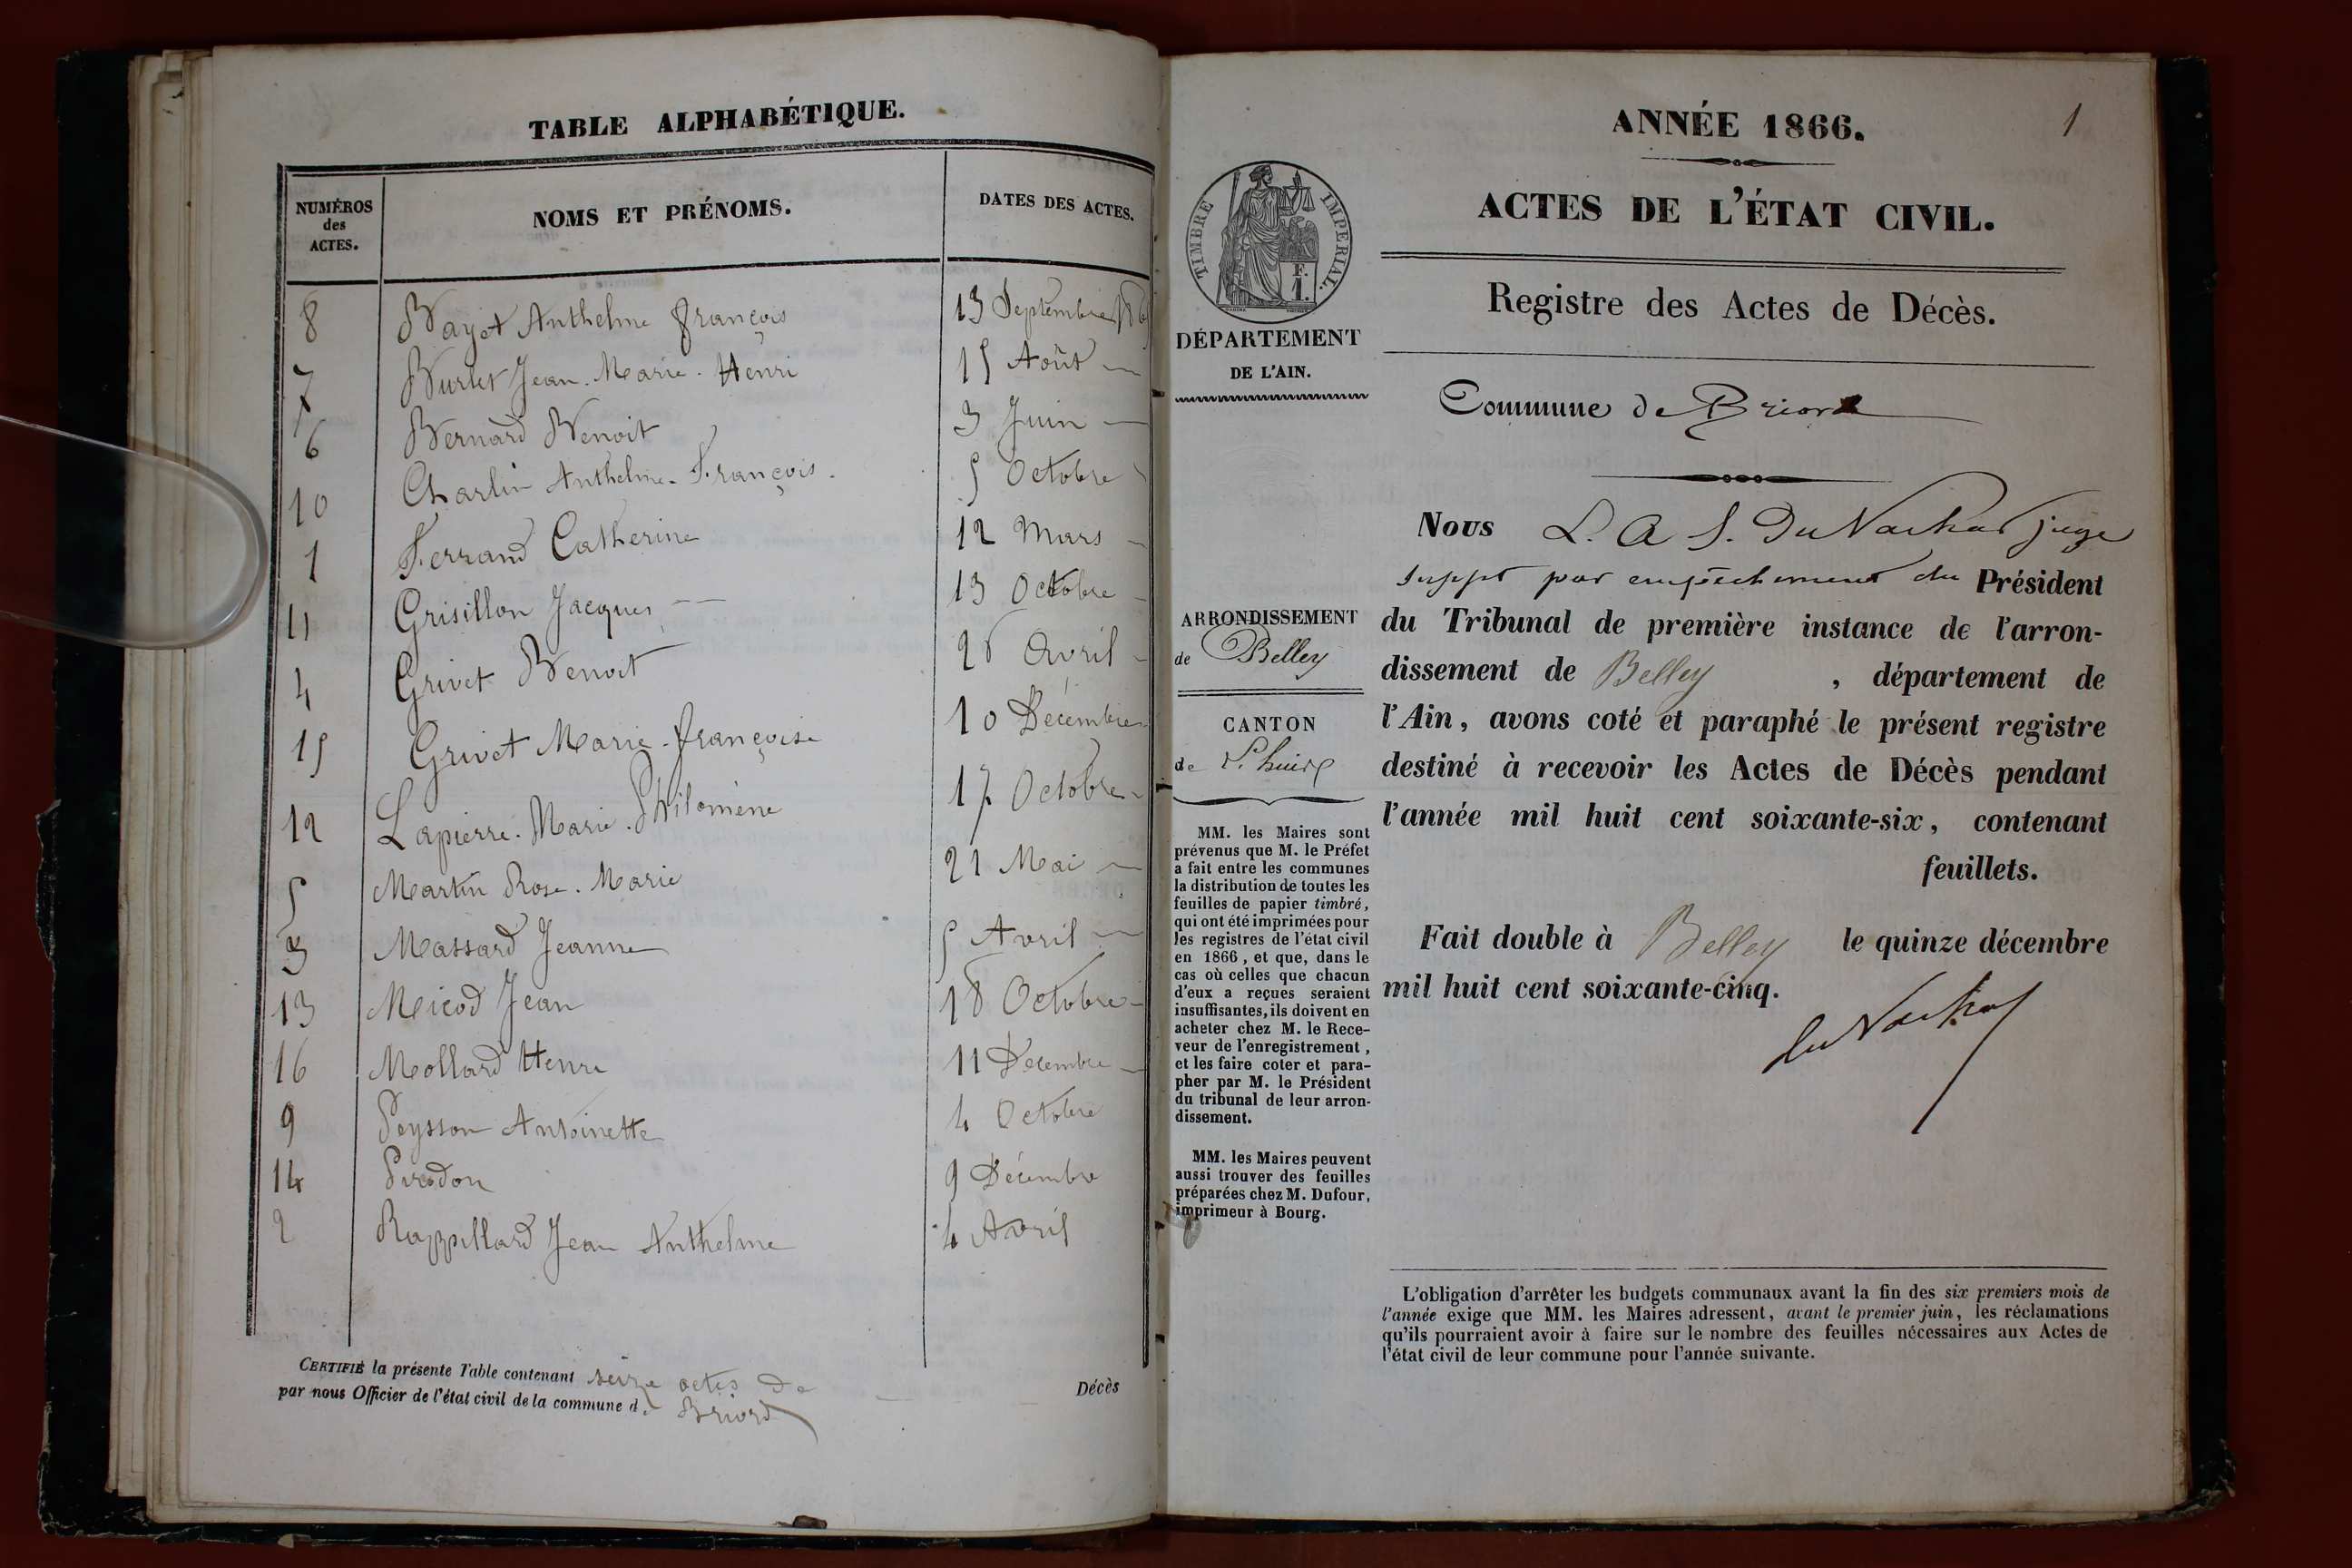 TABLE ALPHABÉTIQUE.
NUMÉROS des ACTES. NOMS ET PRÉNOMS. DATES DES ACTES.
8 Bayet Anthelme François 13 Septembre
7 Burlet Jean. Marie. Henri 15 Août
6 Bernard Benoit 3 Juin
10 Charlin Anthelme. François. 5 Octobre
1 Ferrand Catherine 12 Mars
11 Grisillon Jacques 13 Octobre
4 Grivet Benoit 28 Avril
15 Grivet Marie-françoise 10 Décembre
12 Lapierre. Marie. Philomène 17 Octobre
5 Martin Rose. Marie 21 Mai
3 Massard Jeanne 5 Avril
13 Micod Jean 18 Octobre
16 Mollard Henri 11 Décembre
9 Peysson Antoinette 4 Octobre
14 Pirodon 9 Décembre
2 Rappillard Jean Anthelme 4 Avril
CERTIFIÉ la présente Table contenant seize actes de Décès
par nous Officier de l'état civil de la commune d. Briord
1
ANNÉE 1866.
ACTES DE L'ÉTAT CIVIL.
Registre des Actes de Décès.
TIMBRE IMPERIAL.
F.
1.
DÉPARTEMENT
DE L'AIN.
Commune de Briord
ARRONDISSEMENT
de Belley
CANTON
de L'huis
MM. les Maires sont
prévenus que M. le Préfet
a fait entre les communes
la distribution de toutes les
feuilles de papier timbré,
qui ont été imprimées pour
les registres de l'état civil
en 1866, et que, dans le
cas où celles que chacun
d'eux a reçues seraient
insuffisantes, ils doivent en
acheter chez M. le Rece-
veur de l'enregistrement,
et les faire coter et para-
pher par M. le Président
du tribunal de leur arron-
dissement.
MM. les Maires peuvent
aussi trouver des feuilles
préparées chez M. Dufour,
imprimeur à Bourg.
Nous L. A. S. Du Nachat juge
suppt par empêchement du Président
du Tribunal de première instance de l'arron-
dissement de Belley, département de
l'Ain, avons coté et paraphé le présent registre
destiné à recevoir les Actes de Décès pendant
l'année mil huit cent soixante-six, contenant
feuillets.
Fait double à Belley le quinze décembre
mil huit cent soixante-cinq.
du Nachat
L'obligation d'arrêter les budgets communaux avant la fin des six premiers mois de
l'année exige que MM. les Maires adressent, avant le premier juin, les réclamations
qu'ils pourraient avoir à faire sur le nombre des feuilles nécessaires aux Actes de
l'état civil de leur commune pour l'année suivante.